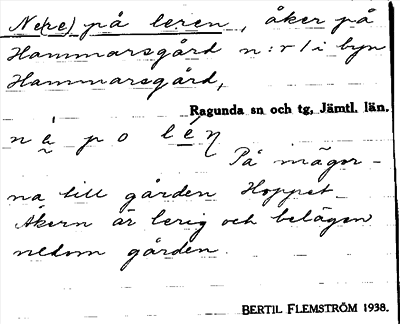 Ne(re) på leren, åker på
Hammarsgård n:r 1 i byn
Hammarsgård,
Ragunda sn och tg, Jämtl. län.
På mägor-
na till gården Hoppet.
Åkern är lerig och belägen
nedom gården.
BERTIL FLEMSTRÖM 1938.